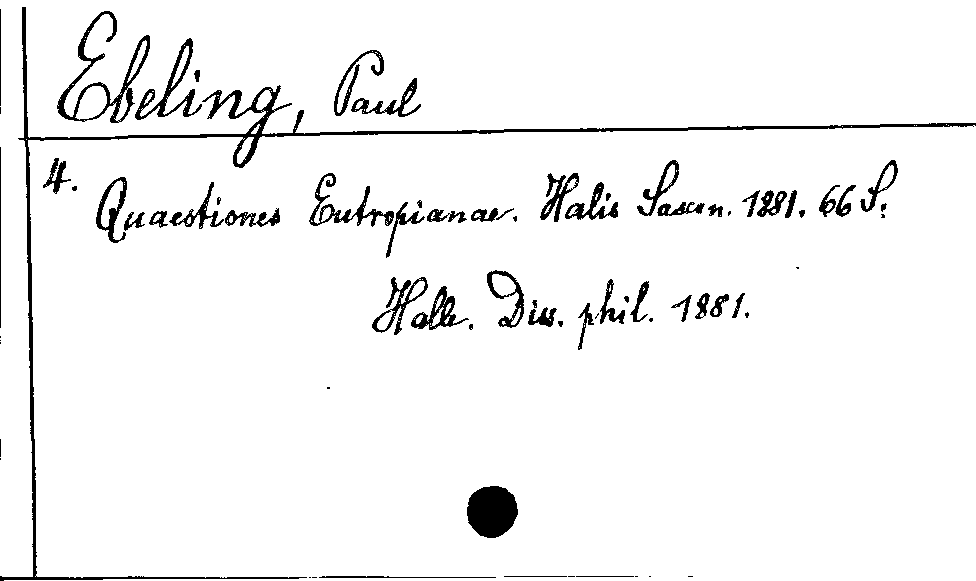 Ebeling, Paul
4.
Quaestiones Eutropianae. Halis Saxon. 1881. 66 S.
Halle. Diss. phil. 1881.